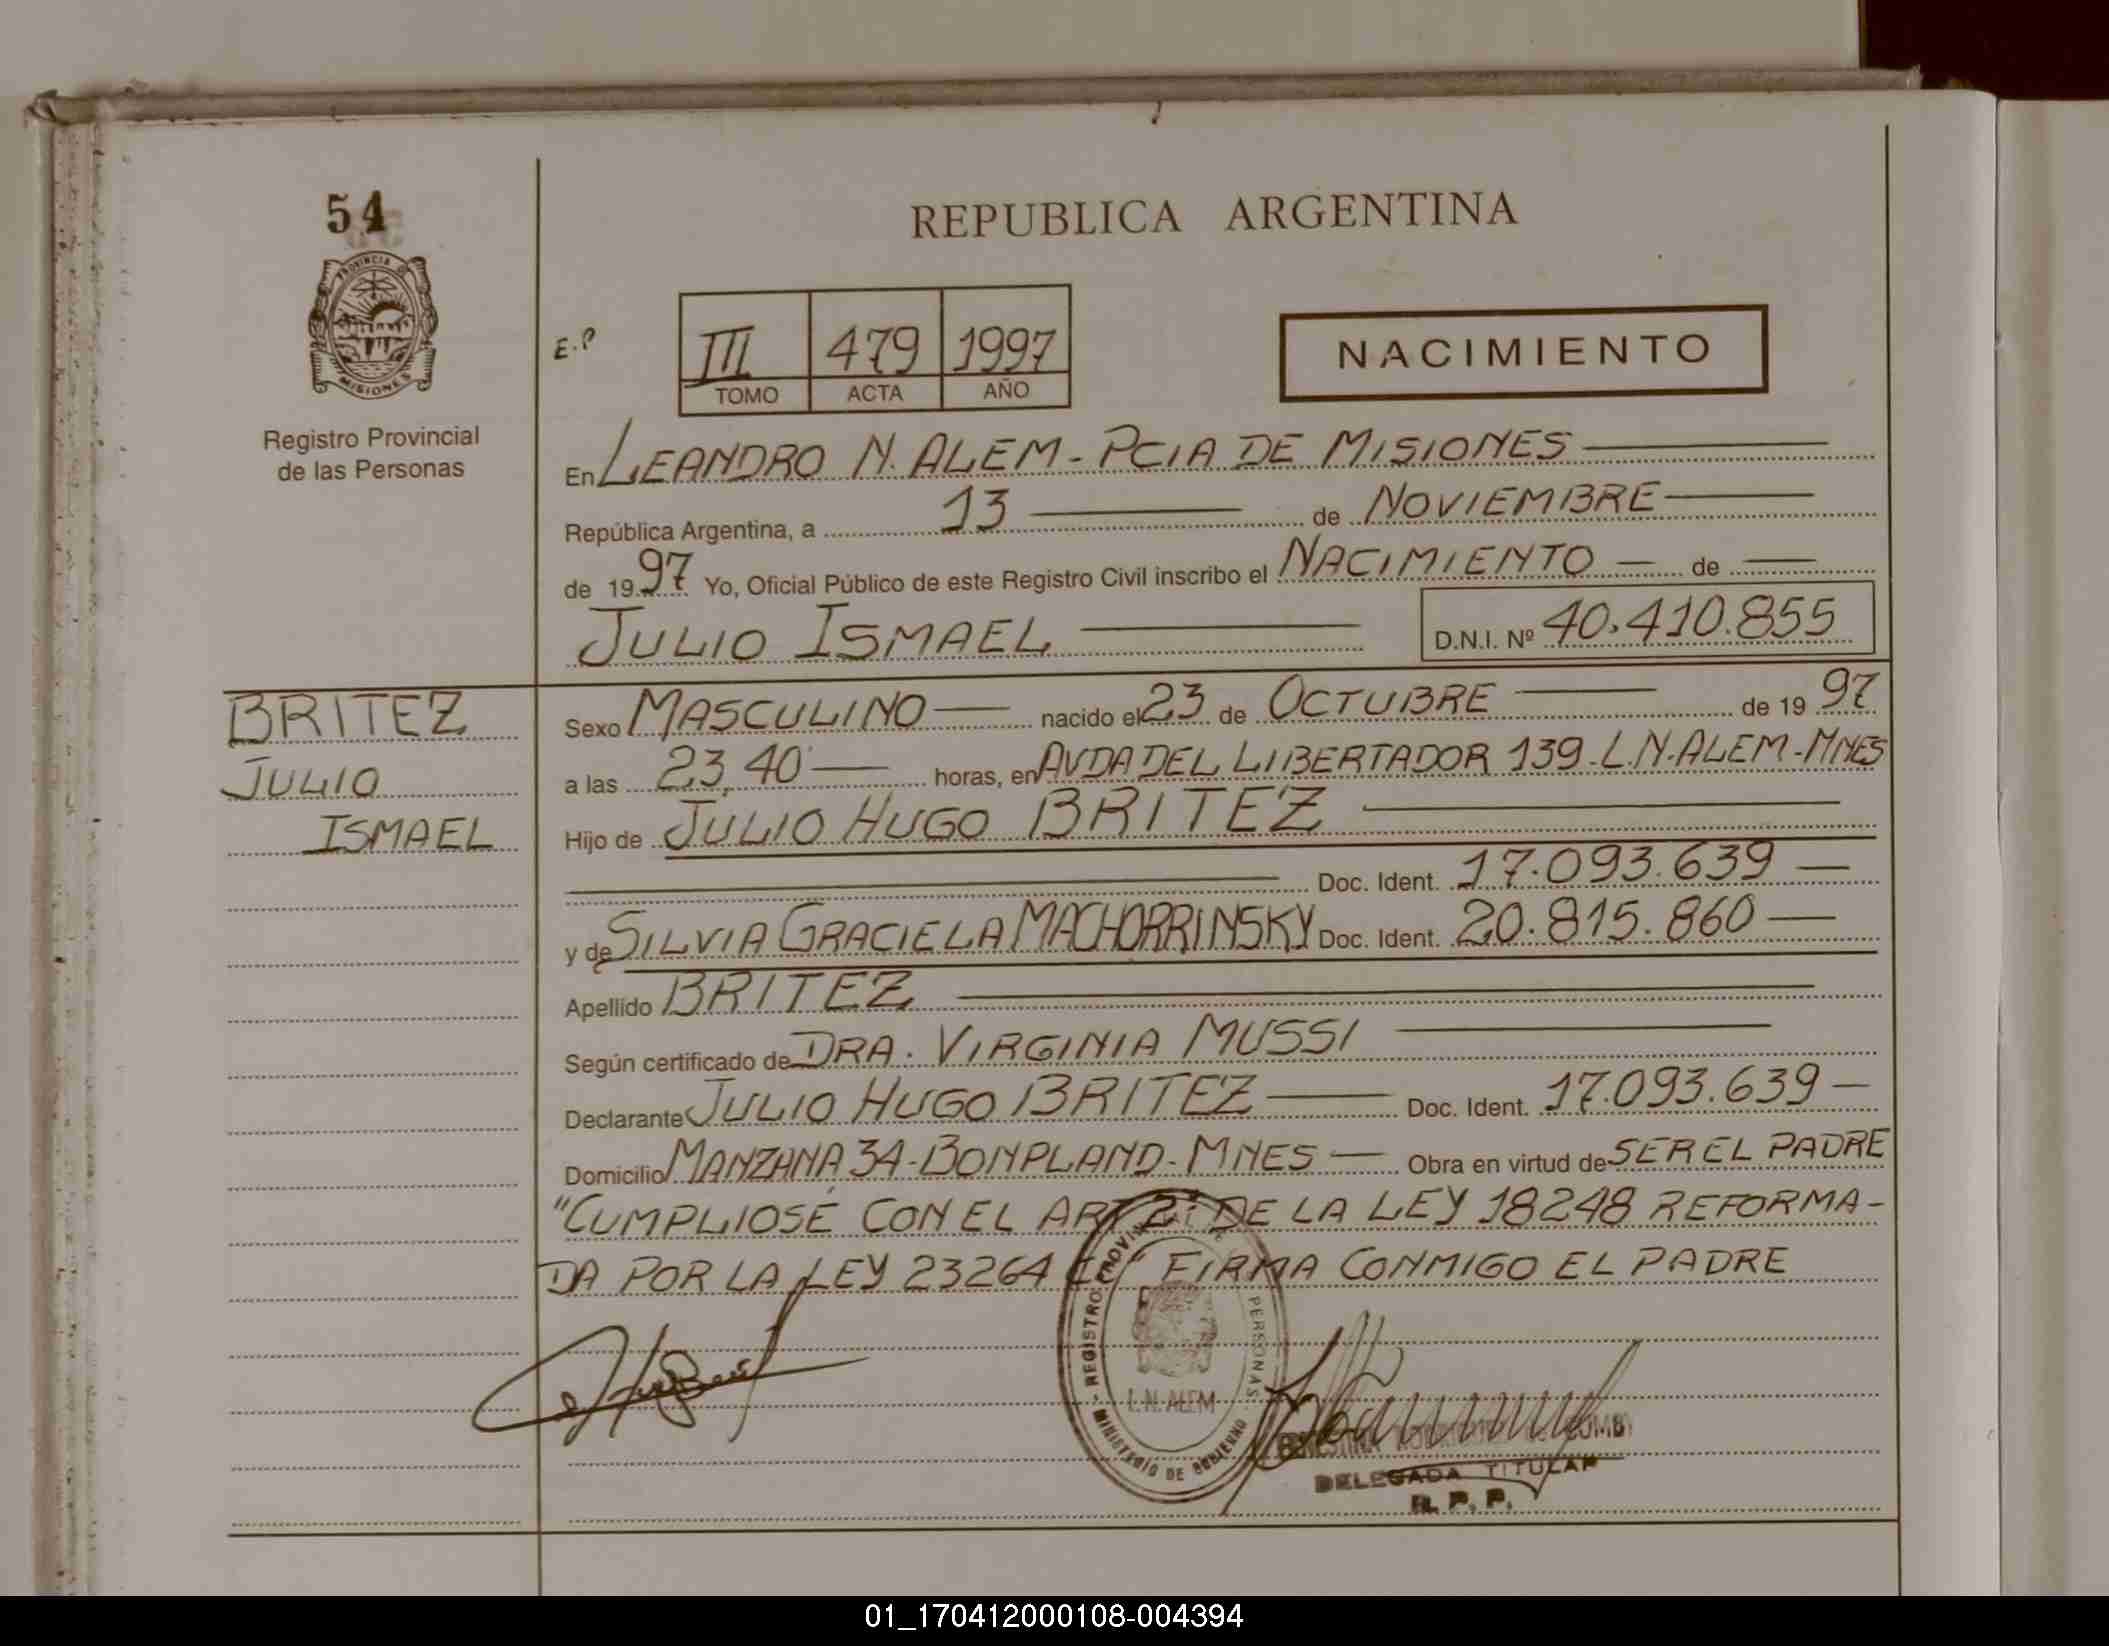 54
REPUBLICA ARGENTINA
PROVINCIA DE
MISIONES
Registro Provincial
de las Personas
E.P
III 479 1997
TOMO ACTA AÑO
NACIMIENTO
En LEANDRO N. ALEM - PCIA DE MISIONES
República Argentina, a 13 de NOVIEMBRE
de 1997 Yo, Oficial Público de este Registro Civil inscribo el NACIMIENTO de
JULIO ISMAEL D.N.I. Nº 40.410.855
BRITEZ
JULIO
ISMAEL
Sexo MASCULINO nacido el 23 de OCTUBRE de 1997
a las 23,40 horas, en AVDA DEL LIBERTADOR 139-L.N.ALEM-MNES
Hijo de JULIO HUGO BRITEZ
Doc. Ident. 17.093.639
y de SILVIA GRACIELA MACHORRINSKY Doc. Ident. 20.815.860
Apellido BRITEZ
Según certificado de DRA. VIRGINIA MUSSI
Declarante JULIO HUGO BRITEZ Doc. Ident. 17.093.639
Domicilio MANZANA 34-BONPLAND-MNES Obra en virtud de SER EL PADRE
"CUMPLIOSE CON EL ART 2: DE LA LEY 18248 REFORMA-
DA POR LA LEY 23264 FIRMA CONMIGO EL PADRE
REGISTRO PERSONAS
L.N. ALEM
MINISTERIO DE GOBIERNO
DELEGADA TITULAR
R.P.P.
01_170412000108-004394